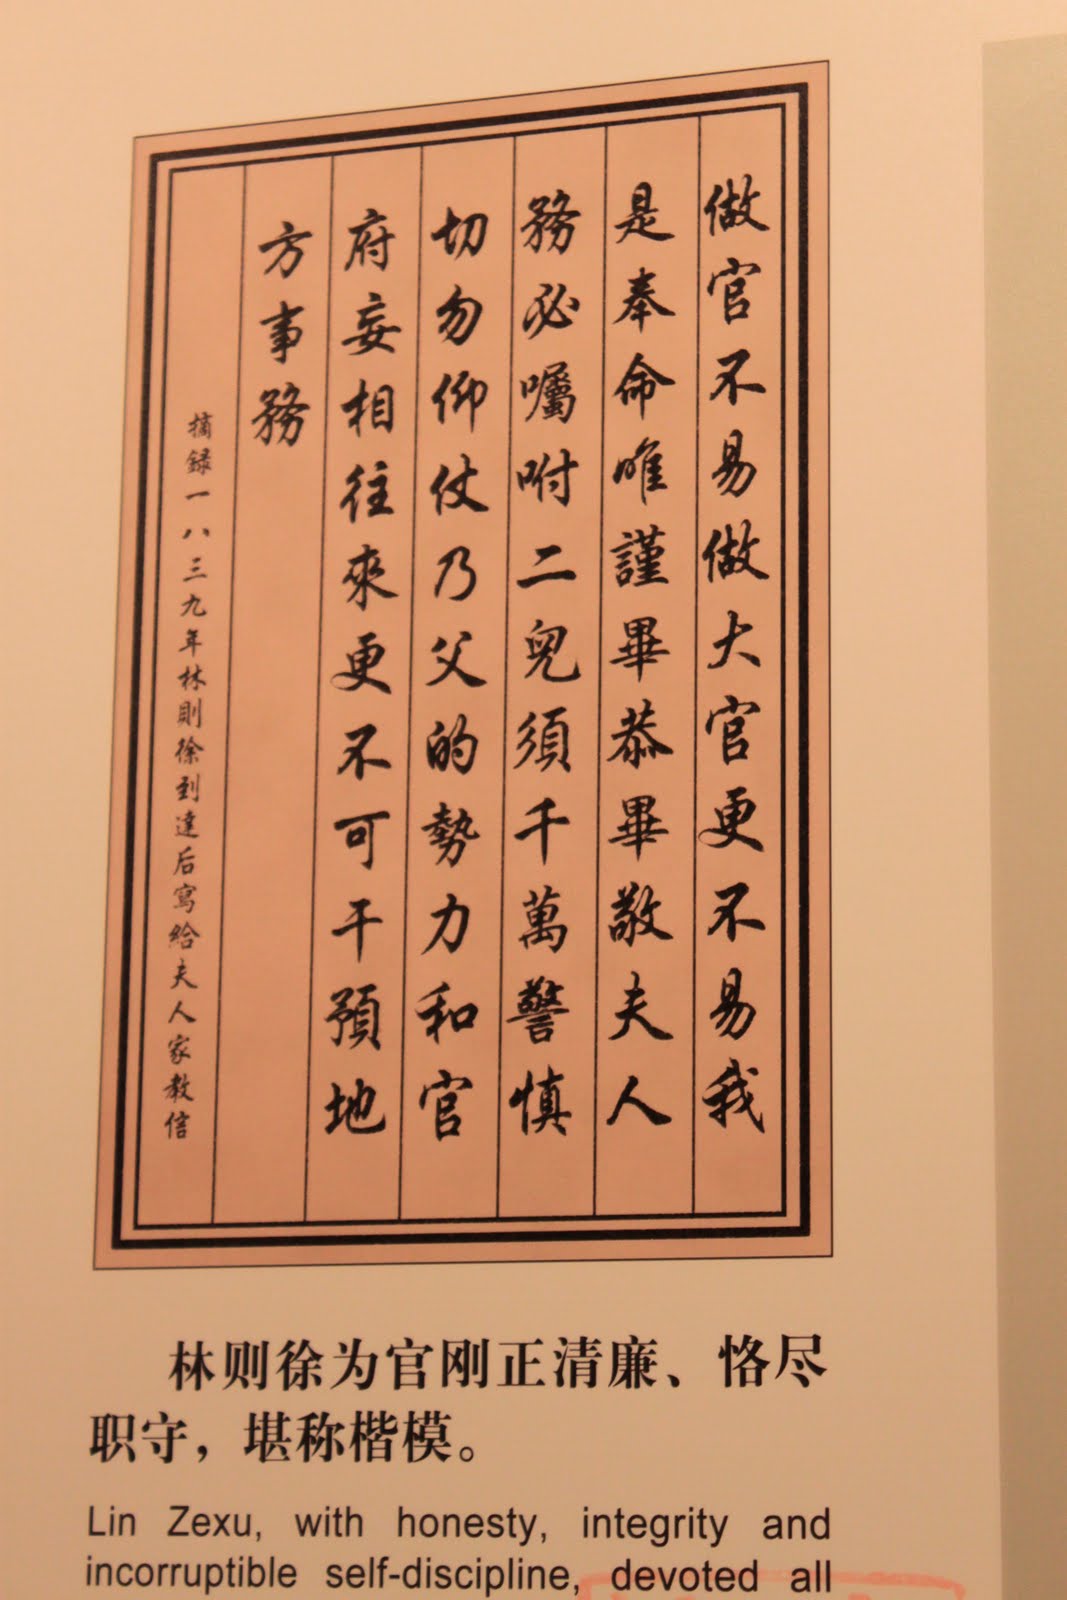 做官不易做大官更不易我
是奉命唯謹畢恭畢敬夫人
務必囑咐二兒須千萬警慎
切勿仰仗乃父的勢力和官
府妄相往來更不可干預地
方事務
摘録一八三九年林則徐到達后寫給夫人家教信
林则徐为官刚正清廉、恪尽
职守，堪称楷模。
Lin Zexu, with honesty, integrity and
incorruptible self-discipline, devoted all